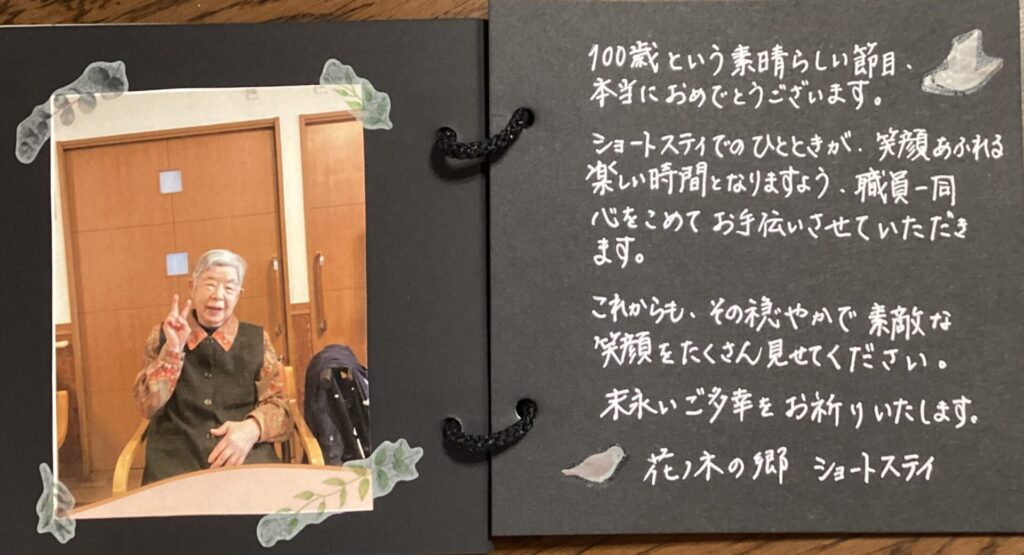 100歳という素晴らしい節目、
本当におめでとうございます。
ショートステイでのひとときが、笑顔あふれる
楽しい時間となりますよう、職員一同
心をこめてお手伝いさせていただき
ます。
これからも、その穏やかで素敵な
笑顔をたくさん見せてください。
末永いご多幸をお祈りいたします。
花ノ木の郷 ショートステイ